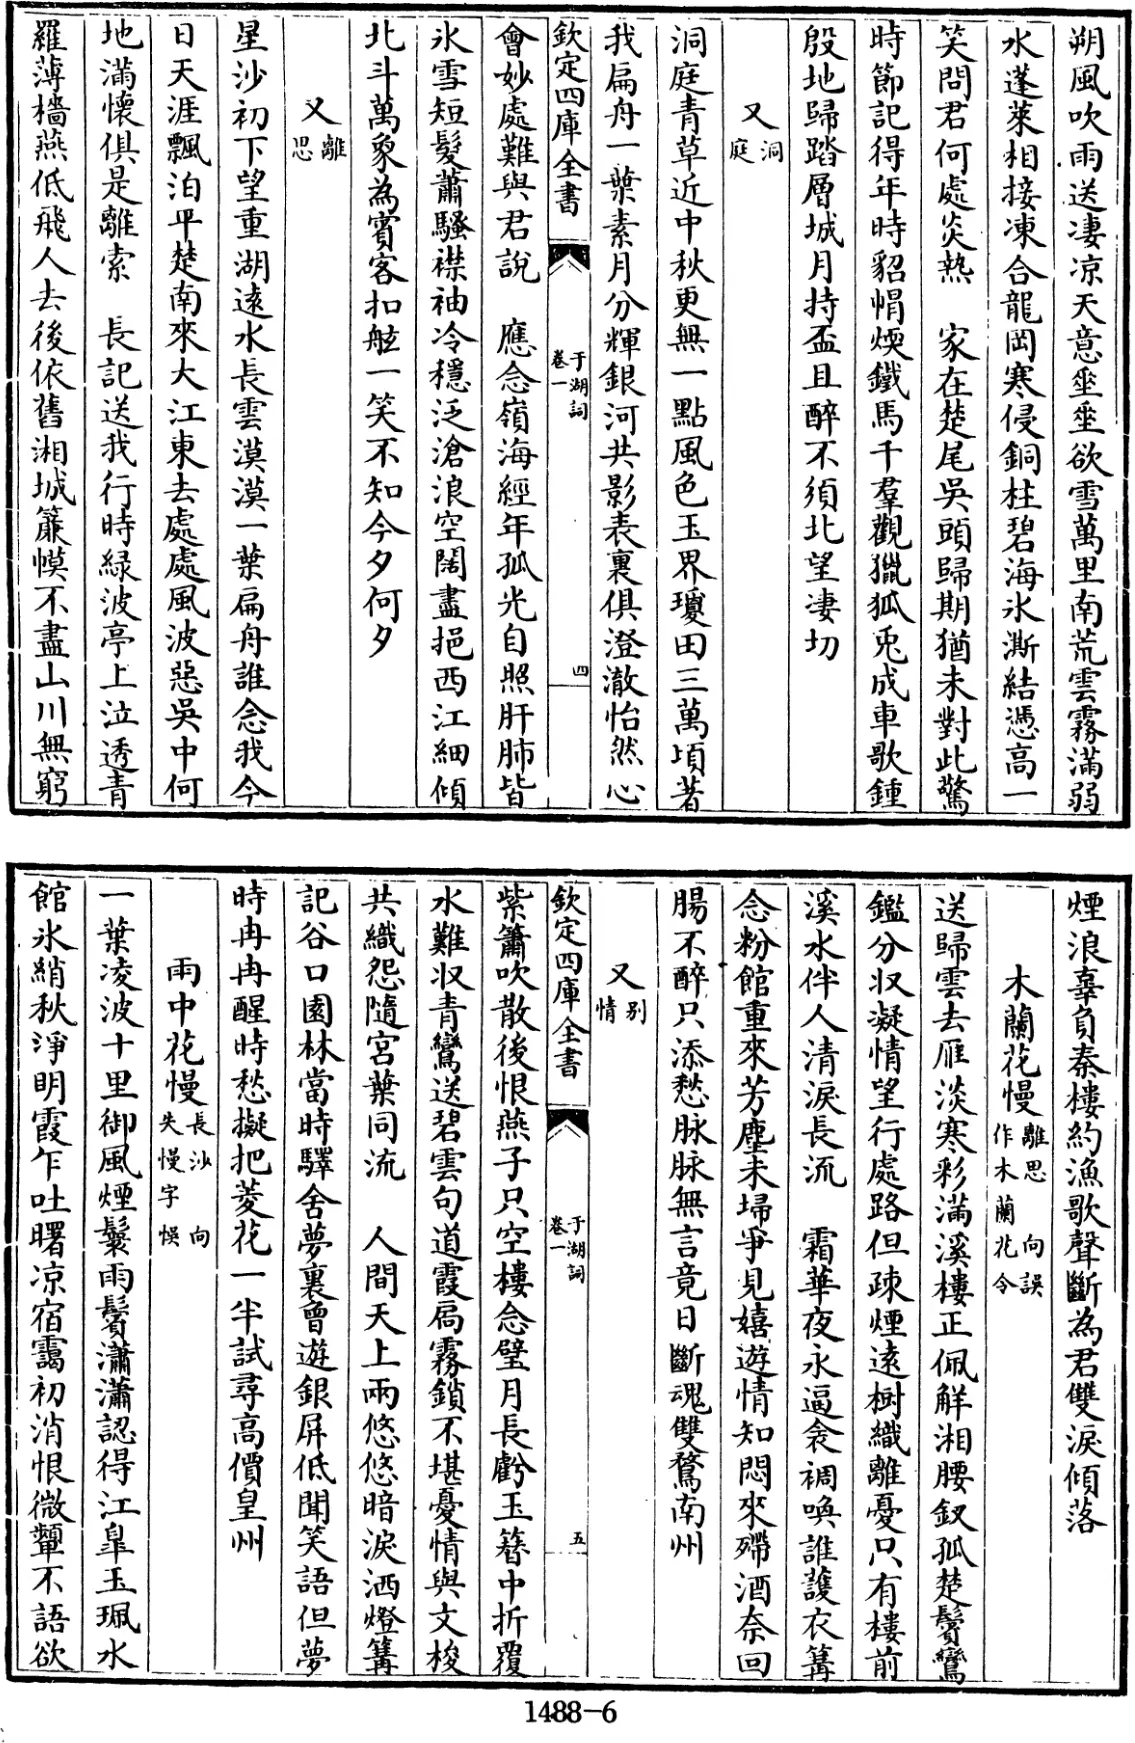 朔風吹雨送凄凉天意垂垂欲雪萬里南荒雲霧滿弱
水蓬萊相接凍合龍岡寒侵銅柱碧海氷澌結憑高一
笑問君何處炎熱　家在楚尾吳頭歸期猶未對此驚
時節記得年時貂帽煖鐵馬千羣觀獵狐兎成車歌鍾
殷地歸踏層城月持盃且醉不須北望凄切
又洞庭
洞庭青草近中秋更無一點風色玉界瓊田三萬頃著
我扁舟一葉素月分輝銀河共影表裏俱澄澈怡然心
欽定四庫全書
于湖詞
卷一
四
會妙處難與君說　應念嶺海經年孤光自照肝肺皆
氷雪短髮蕭騷襟袖冷穩泛滄浪空闊盡挹西江細傾
北斗萬象為賓客扣舷一笑不知今夕何夕
又離思
星沙初下望重湖遠水長雲漠漠一葉扁舟誰念我今
日天涯飄泊平楚南來大江東去處處風波惡吳中何
地滿懷俱是離索　長記送我行時緑波亭上泣透青
羅薄檣燕低飛人去後依舊湘城簾幙不盡山川無窮
煙浪辜負秦樓約漁歌聲斷為君雙淚傾落
木蘭花慢離思　向誤作木蘭花令
送歸雲去雁淡寒彩滿溪樓正佩解湘腰釵孤楚鬢鸞
鑑分収凝情望行處路但疎煙遠樹織離憂只有樓前
溪水伴人清淚長流　霜華夜永逼衾裯喚誰護衣篝
念粉館重來芳塵未埽爭見嬉遊情知悶來殢酒奈回
腸不醉只添愁脉脉無言竟日斷魂雙鶩南州
又别情
欽定四庫全書
于湖詞
卷一
五
紫簫吹散後恨燕子只空樓念璧月長虧玉簪中折覆
水難収青鸞送碧雲句道霞扃霧鎖不堪憂情與文梭
共織怨隨宮葉同流　人間天上兩悠悠暗淚洒燈篝
記谷口園林當時驛舍夢裏曾遊銀屏低聞笑語但夢
時冉冉醒時愁擬把菱花一半試尋高價皇州
雨中花慢長沙　向失慢字悞
一葉凌波十里御風煙鬟雨鬢瀟瀟認得江臯玉珮水
館氷綃秋淨明霞乍吐曙凉宿靄初消恨微顰不語欲
1488-6